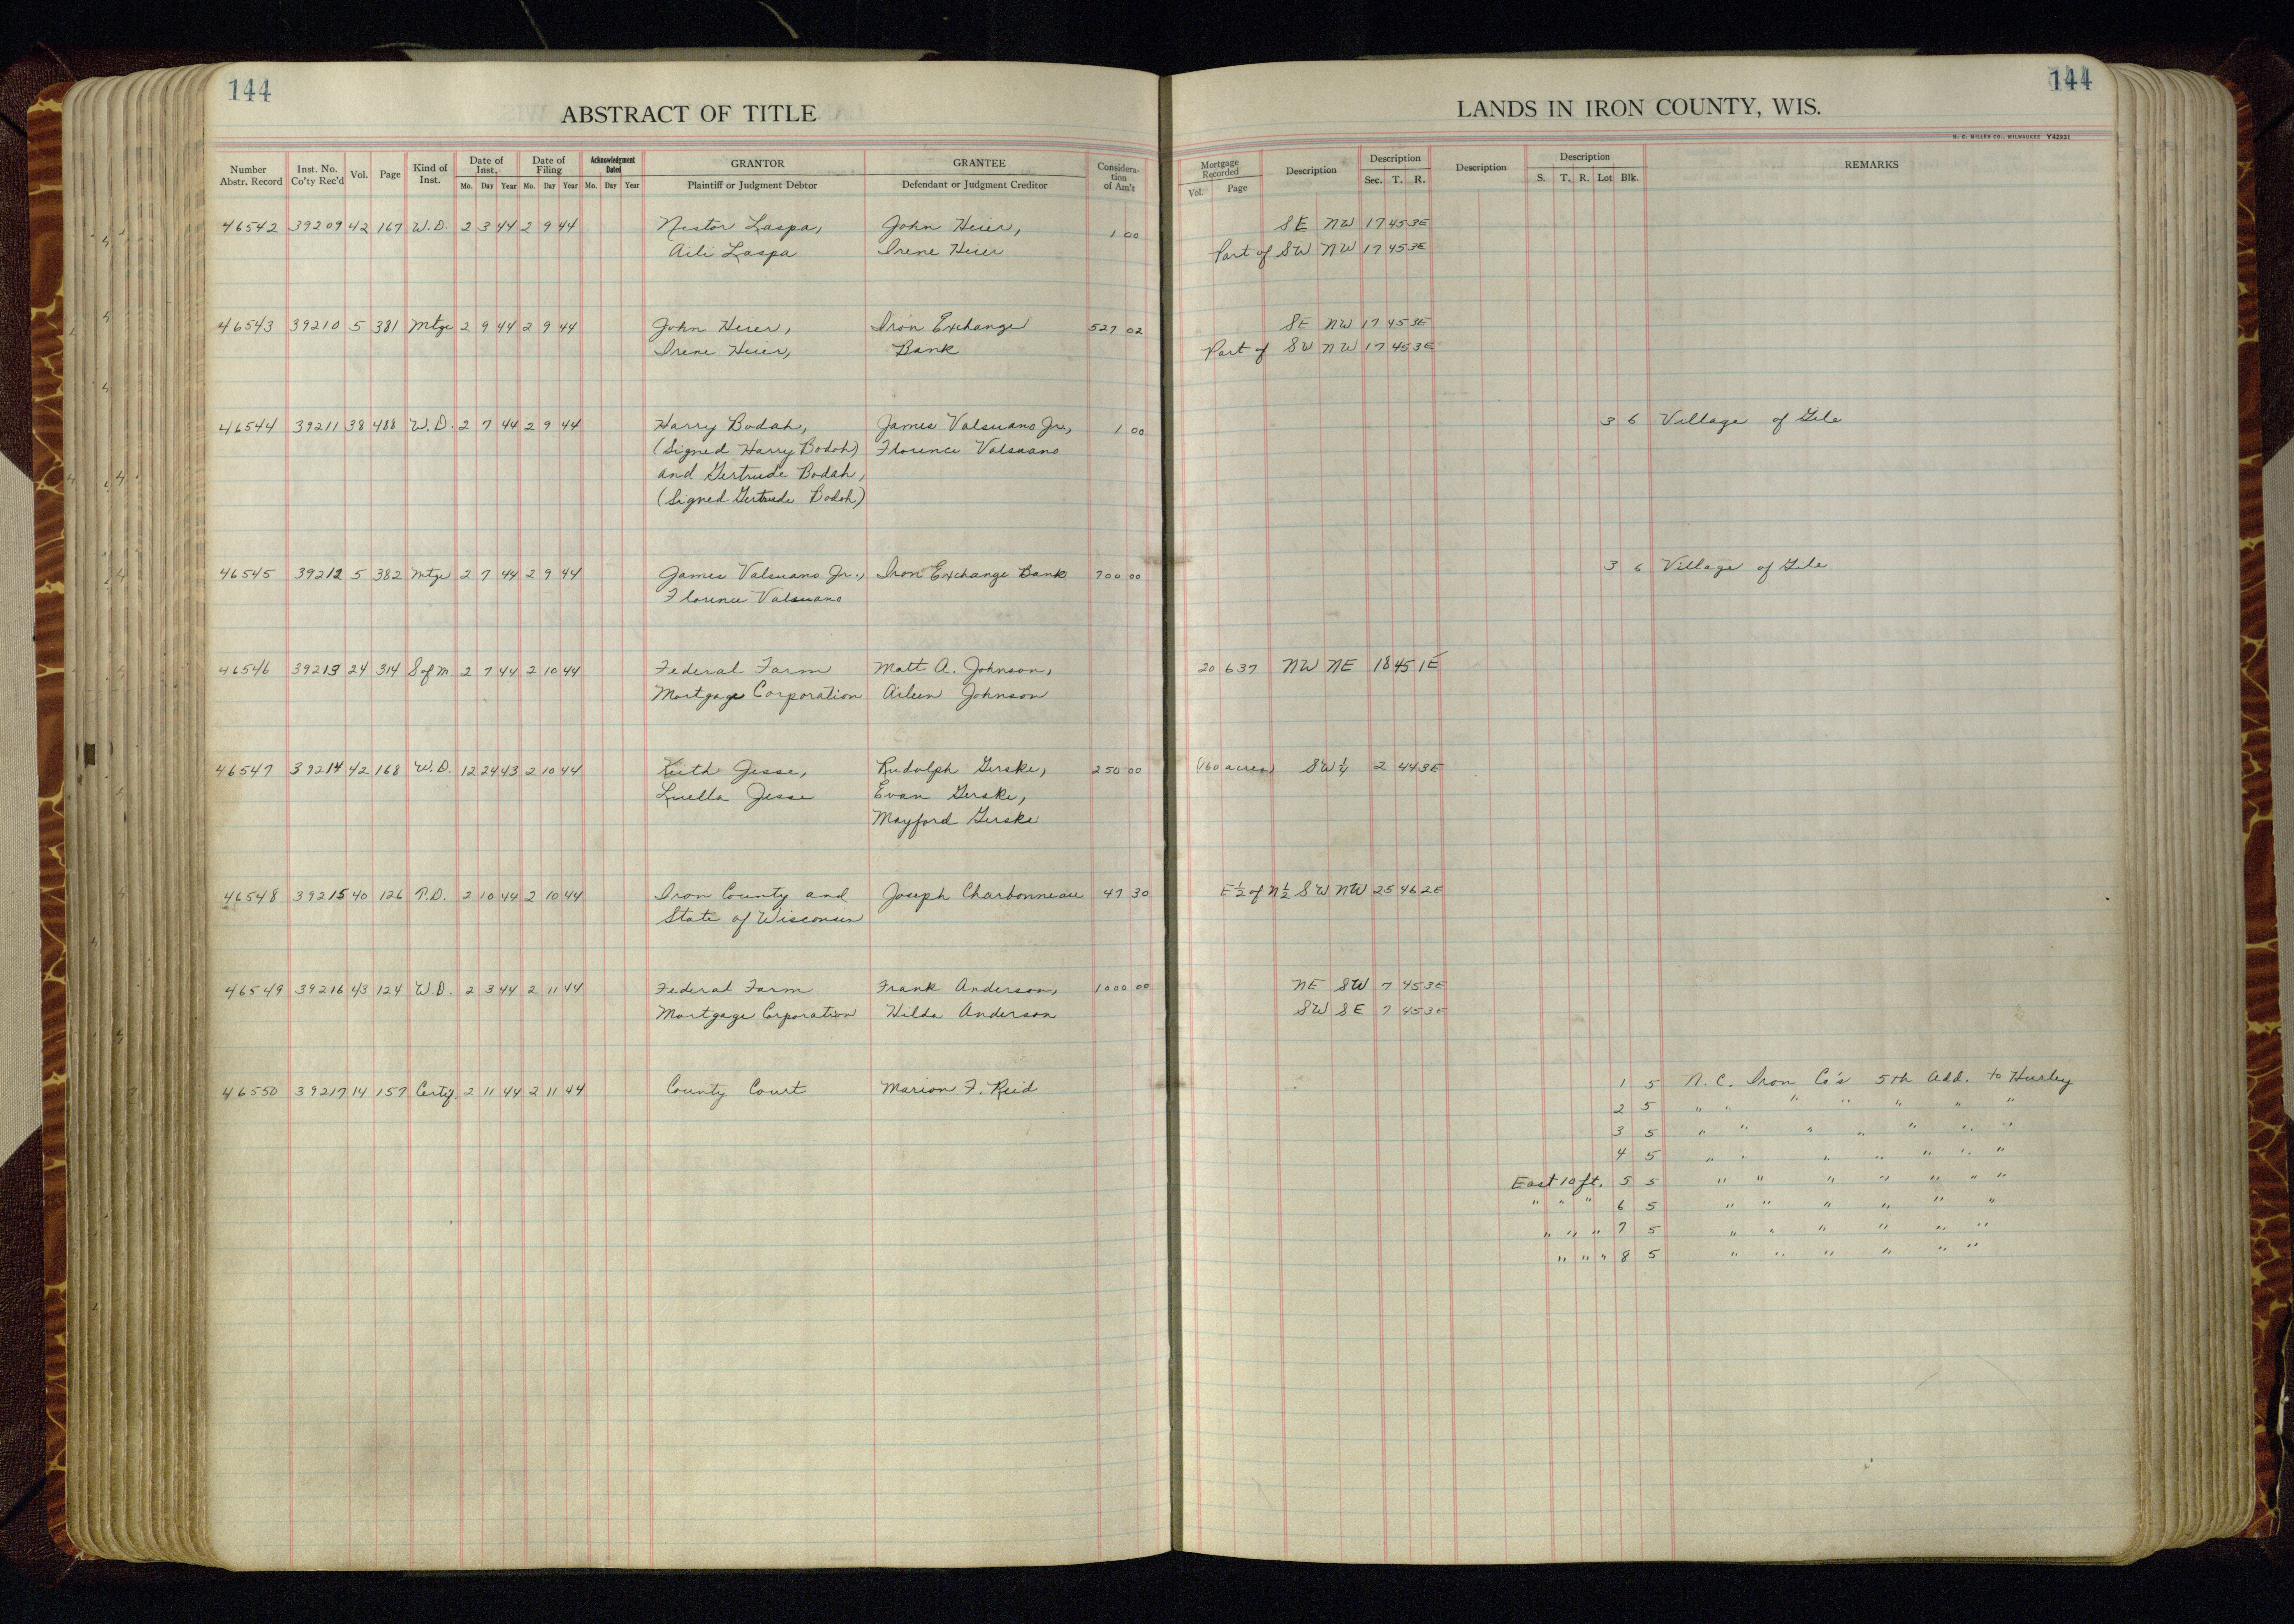 144
ABSTRACT OF TITLE
Number Abstr. Record | Inst. No. Co'ty Rec'd | Vol. | Page | Kind of Inst. | Date of Inst. Mo. Day Year | Date of Filing Mo. Day Year | Acknowledgment Dated Mo. Day Year | GRANTOR Plaintiff or Judgment Debtor | GRANTEE Defendant or Judgment Creditor | Consideration of Am't
46542 39209 42 167 W.D. 2 3 44 2 9 44 Nestor Laspa, John Heier, 1 00
Aili Laspa Irene Heier
46543 39210 5 381 Mtge 2 9 44 2 9 44 John Heier, Iron Exchange 527 02
Irene Heier, Bank
46544 39211 38 488 W.D. 2 7 44 2 9 44 Harry Bodah, James Valsuano Jr., 1 00
(Signed Harry Bodoh) Florence Valsuano
and Gertrude Bodah,
(Signed Gertrude Bodoh)
46545 39212 5 382 Mtge 2 7 44 2 9 44 James Valsuano Jr., Iron Exchange Bank 700 00
Florence Valsuano
46546 39213 24 314 S of M. 2 7 44 2 10 44 Federal Farm Matt A. Johnson,
Mortgage Corporation Aileen Johnson
46547 39214 42 168 W.D. 12 24 43 2 10 44 Keith Jesse, Rudolph Gerske, 250 00
Luella Jesse Evan Gerske,
Mayford Gerske
46548 39215 40 126 T.D. 2 10 44 2 10 44 Iron County and Joseph Charbonneau 47 30
State of Wisconsin
46549 39216 43 124 W.D. 2 3 44 2 11 44 Federal Farm Frank Anderson, 1000 00
Mortgage Corporation Hilda Anderson
46550 39217 14 157 Certif. 2 11 44 2 11 44 County Court Marion F. Reid
144
LANDS IN IRON COUNTY, WIS.
H. C. MILLER CO., MILWAUKEE Y42931
Mortgage Recorded Vol. Page | Description | Description Sec. T. R. | Description | Description S. T. R. Lot Blk. | REMARKS
SE NW 17 45 3E
Part of SW NW 17 45 3E
SE NW 17 45 3E
Part of SW NW 17 45 3E
3 6 Village of Gile
3 6 Village of Gile
20 637 NW NE 18 45 1E
(160 acres) SW 1/4 2 44 3E
E 1/2 of N 1/2 SW NW 25 46 2E
NE SW 7 45 3E
SW SE 7 45 3E
1 5 N. C. Iron Co's 5th Add. to Hurley
2 5 " " " " " " "
3 5 " " " " " " "
4 5 " " " " " " "
East 10 ft. 5 5 " " " " " " "
" " " 6 5 " " " " " "
" " " 7 5 " " " " " "
" " " 8 5 " " " " " "